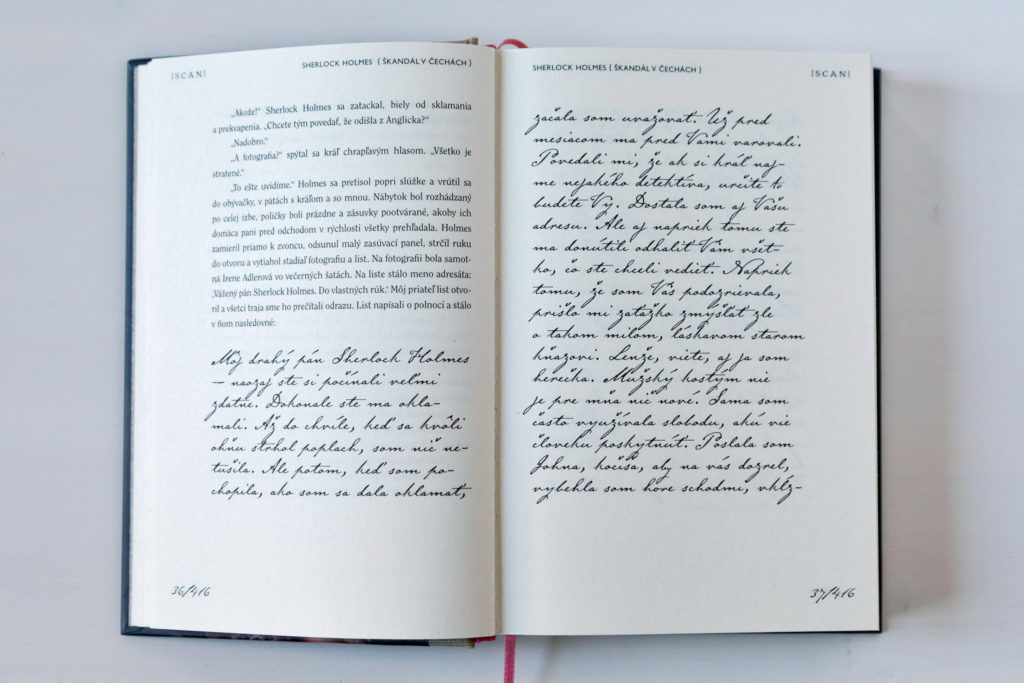 [SCAN]
SHERLOCK HOLMES ( ŠKANDÁL V ČECHÁCH )
„Akože!“ Sherlock Holmes sa zatackal, biely od sklamania
a prekvapenia. „Chcete tým povedať, že odišla z Anglicka?“
„Nadobro.“
„A fotografia?“ spýtal sa kráľ chrapľavým hlasom. „Všetko je
stratené.“
„To ešte uvidíme.“ Holmes sa pretisol popri slúžke a vrútil sa
do obývačky, v pätách s kráľom a so mnou. Nábytok bol rozhádzaný
po celej izbe, poličky boli prázdne a zásuvky pootvárané, akoby ich
domáca pani pred odchodom v rýchlosti všetky prehľadala. Holmes
zamieril priamo k zvoncu, odsunul malý zasúvací panel, strčil ruku
do otvoru a vytiahol stadiaľ fotografiu a list. Na fotografii bola samot-
ná Irene Adlerová vo večerných šatách. Na liste stálo meno adresáta:
‚Vážený pán Sherlock Holmes. Do vlastných rúk.‘ Môj priateľ list otvo-
ril a všetci traja sme ho prečítali odrazu. List napísali o polnoci a stálo
v ňom nasledovné:
Môj drahý pán Sherlock Holmes
— naozaj ste si počínali veľmi
zdatne. Dokonale ste ma okla-
mali. Až do chvíle, keď sa kvôli
ohňu strhol poplach, som nič ne-
tušila. Ale potom, keď som po-
chopila, ako som sa dala oklamať,
36/416
SHERLOCK HOLMES ( ŠKANDÁL V ČECHÁCH )
[SCAN]
začala som uvažovať. Už pred
mesiacom ma pred Vami varovali.
Povedali mi, že ak si kráľ naj-
me nejakého detektíva, určite to
budete Vy. Dostala som aj Vašu
adresu. Ale aj napriek tomu ste
ma donútili odhaliť Vám všet-
ko, čo ste chceli vedieť. Napriek
tomu, že som Vás podozrievala,
prišlo mi zaťažko zmýšľať zle
o takom milom, láskavom starom
kňazovi. Lenže, viete, aj ja som
herečka. Mužský kostým nie
je pre mňa nič nové. Sama som
často využívala slobodu, akú vie
človeku poskytnúť. Poslala som
Johna, kočiša, aby na vás dozrel,
vybehla som hore schodmi, vkĺz-
37/416